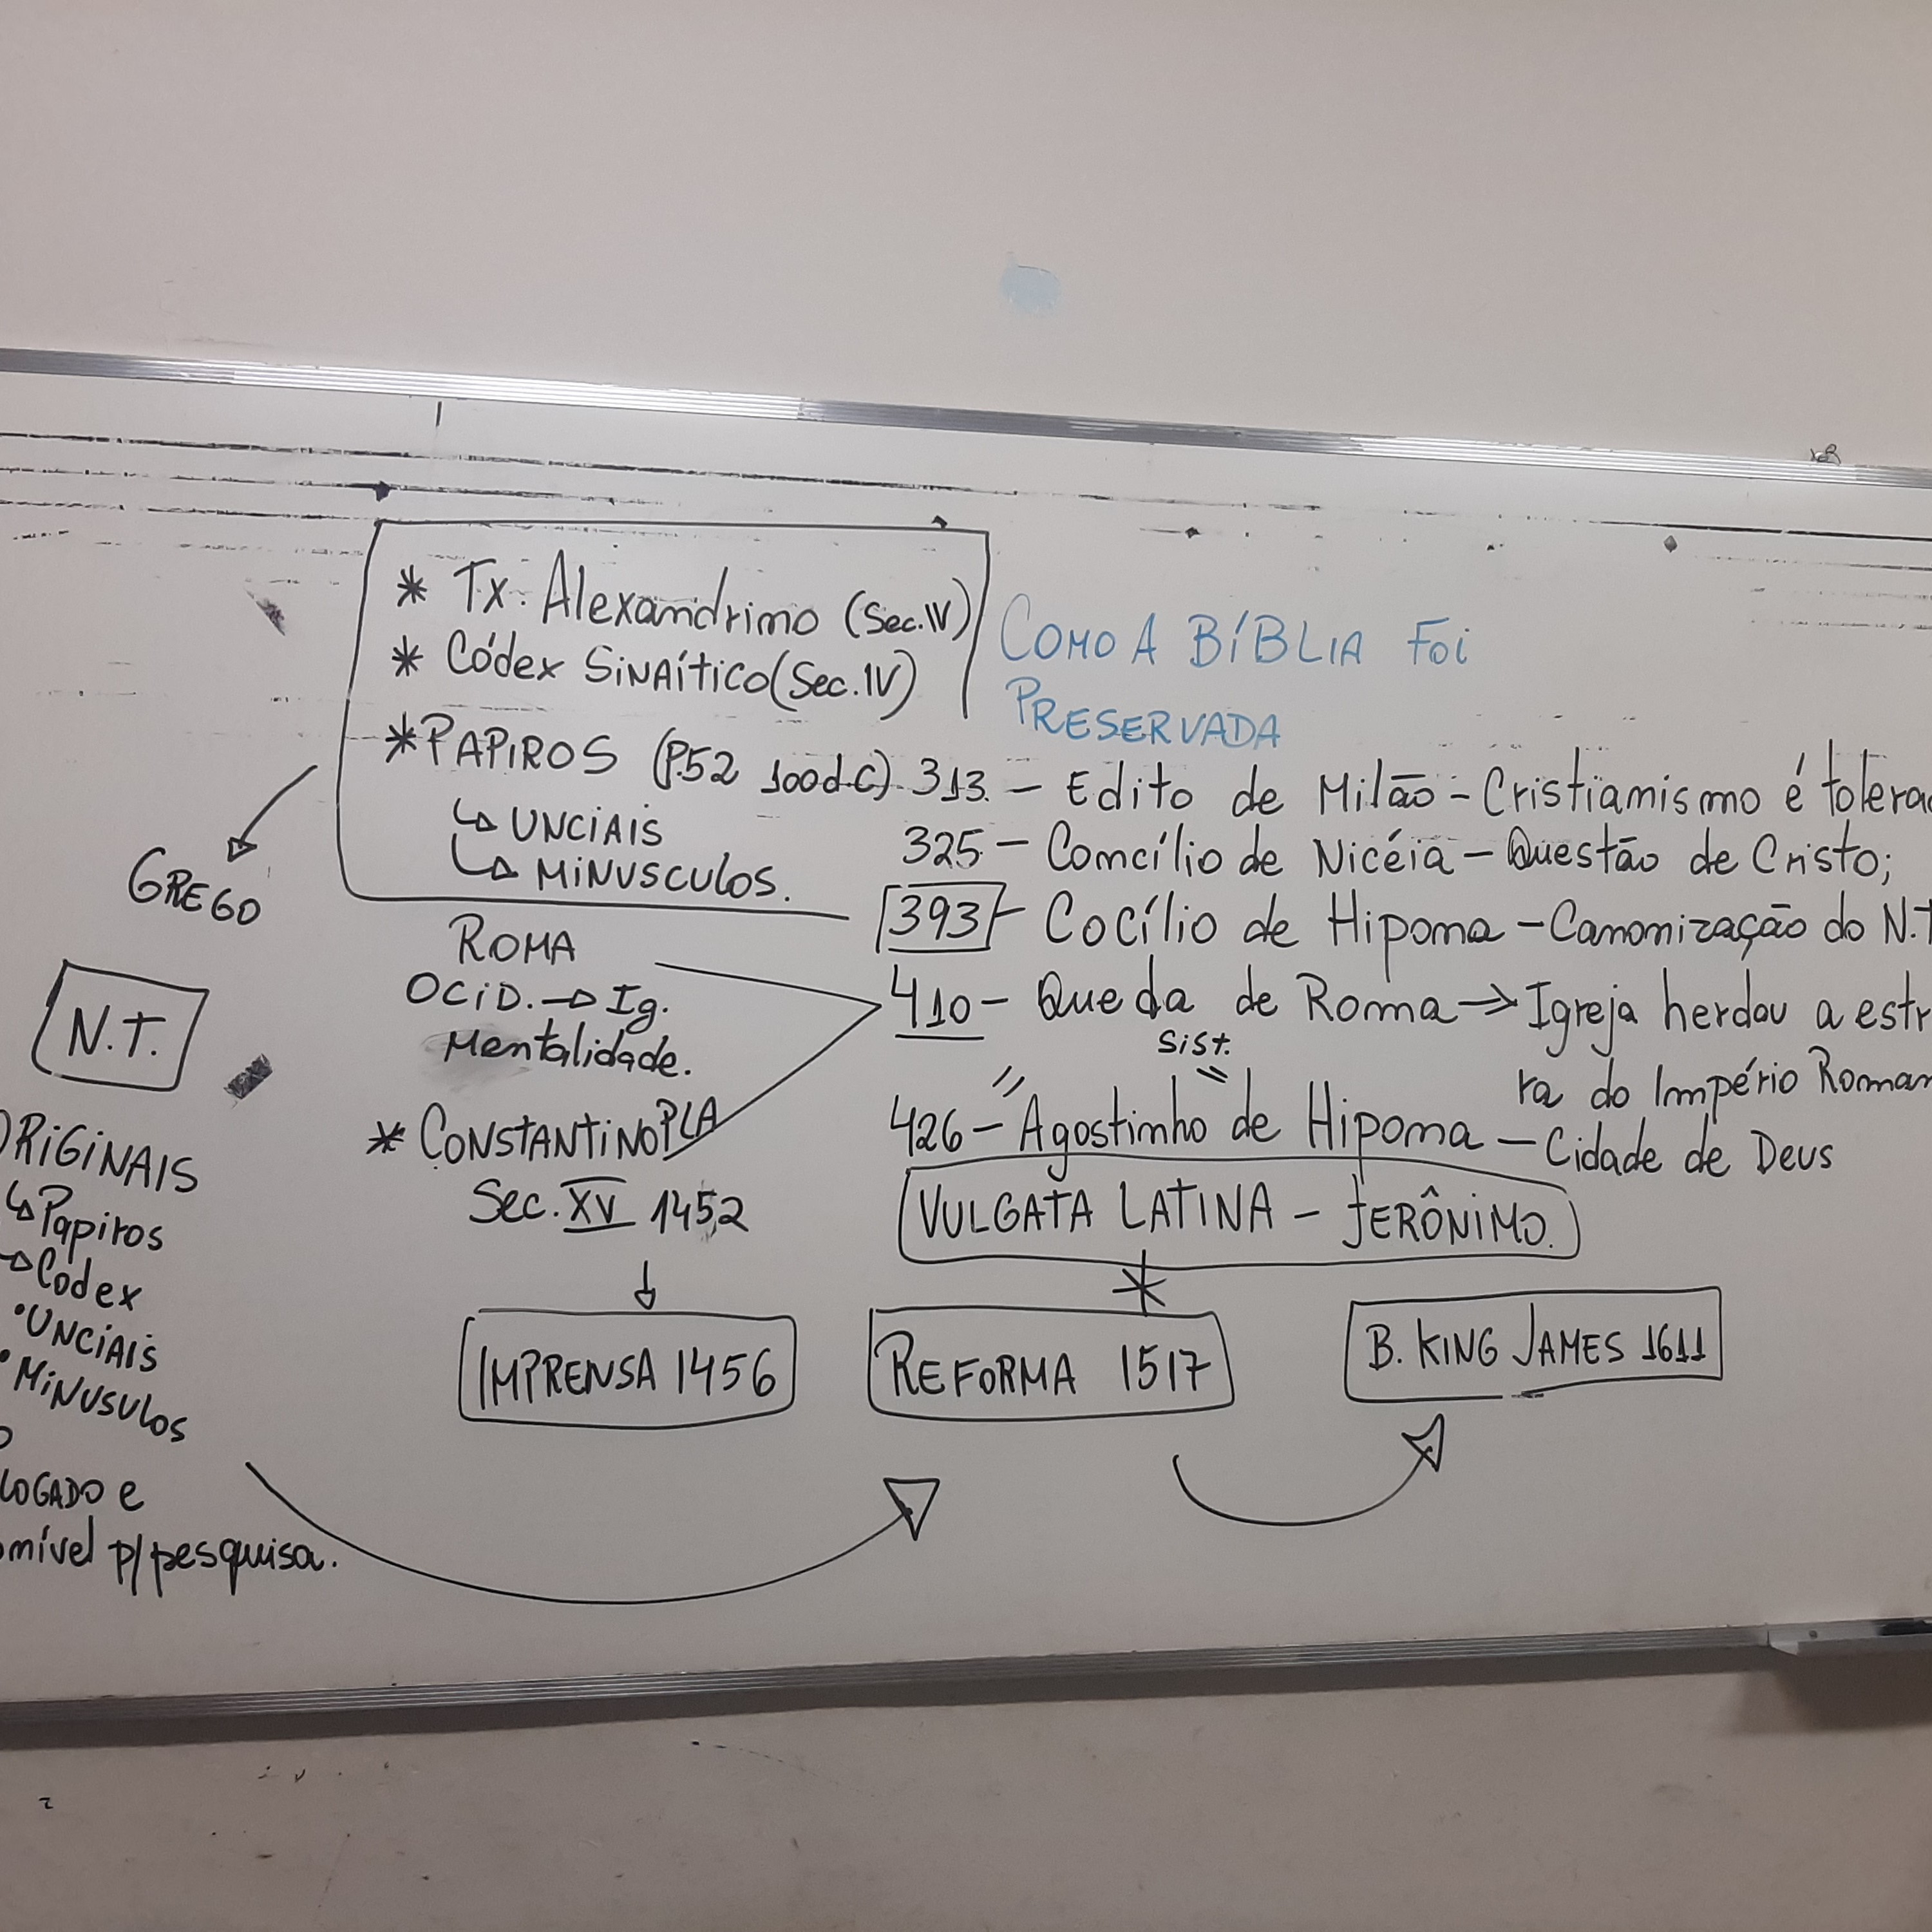 * Tx. Alexandrino (Sec. IV)
* Códex SINAÍTICO (Sec. IV)
* PAPIROS (P.52 100 d.C)
↳ UNCIAIS
↳ MINUSCULOS.
GREGO
COMO A BÍBLIA FOI
PRESERVADA
313. – Edito de Milão – Cristianismo é tolera
325 – Concílio de Nicéia – Questão de Cristo;
393 – Cocílio de Hipona – Canonização do N.T
410 – Queda de Roma → Igreja herdou a estr
ra do Império Roman
Sist.
426 – "Agostinho" de Hipona – Cidade de Deus
VULGATA LATINA – JERÔNIMO.
ROMA
OCID. → Ig.
Mentalidade.
* CONSTANTINOPLA
Sec. XV 1452
N.T.
ORIGINAIS
↳ Papiros
→ Codex
• UNCIAIS
• MINUSULOS
LOGADO e
nível p/ pesquisa.
IMPRENSA 1456
REFORMA 1517
B. KING JAMES 1611